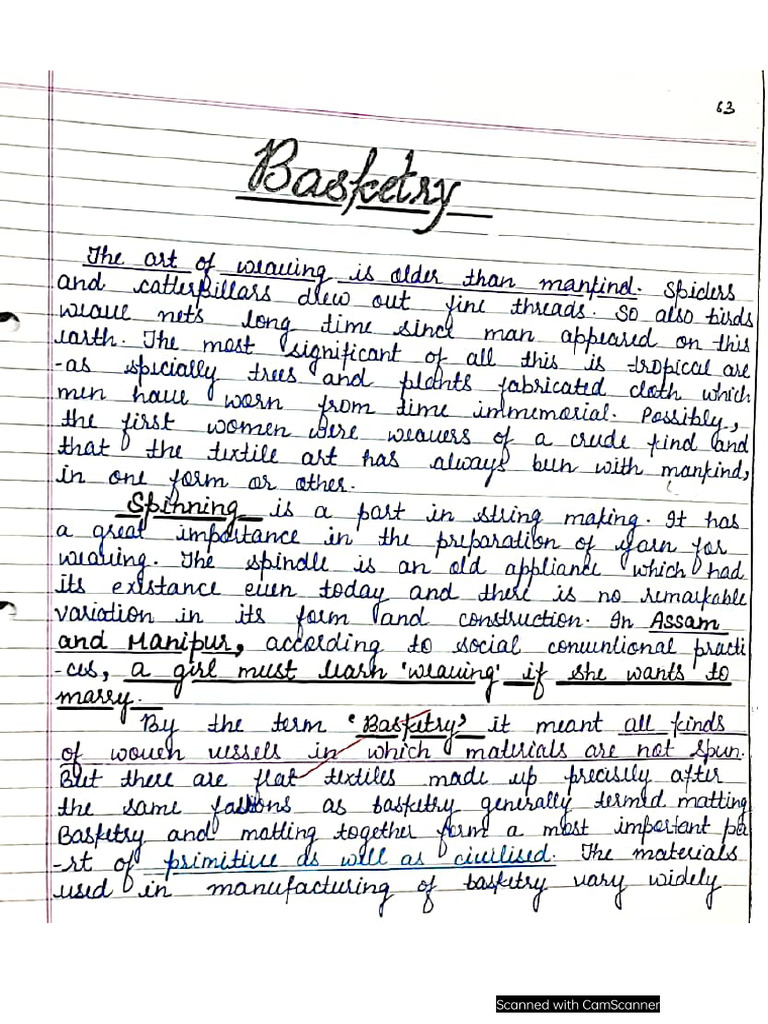 63
Basketry
The art of weaving is older than mankind. Spiders
and catterpillars drew out fine threads. So also birds
weave nets long time since man appeared on this
earth. The most significant of all this is tropical are
-as specially trees and plants fabricated cloth which
men have worn from time immemorial. Possibly,
the first women were weavers of a crude kind and
that the textile art has always been with mankind,
in one form or other.
Spinning is a part in string making. It has
a great importance in the preparation of yarn for
weaving. The spindle is an old appliance which had
its existance even today and there is no remarkable
variation in its form and construction. In Assam
and Manipur, according to social conventional practi
-ces, a girl must learn 'weaving' if she wants to
marry.
By the term 'Basketry' it meant all kinds
of woven vessels in which materials are not spun.
But there are flat textiles made up precisely after
the same fashions as basketry generally termed matting
Basketry and matting together form a most important pa
-rt of primitive as well as civilised. The materials
used in manufacturing of basketry vary widely
Scanned with CamScanner